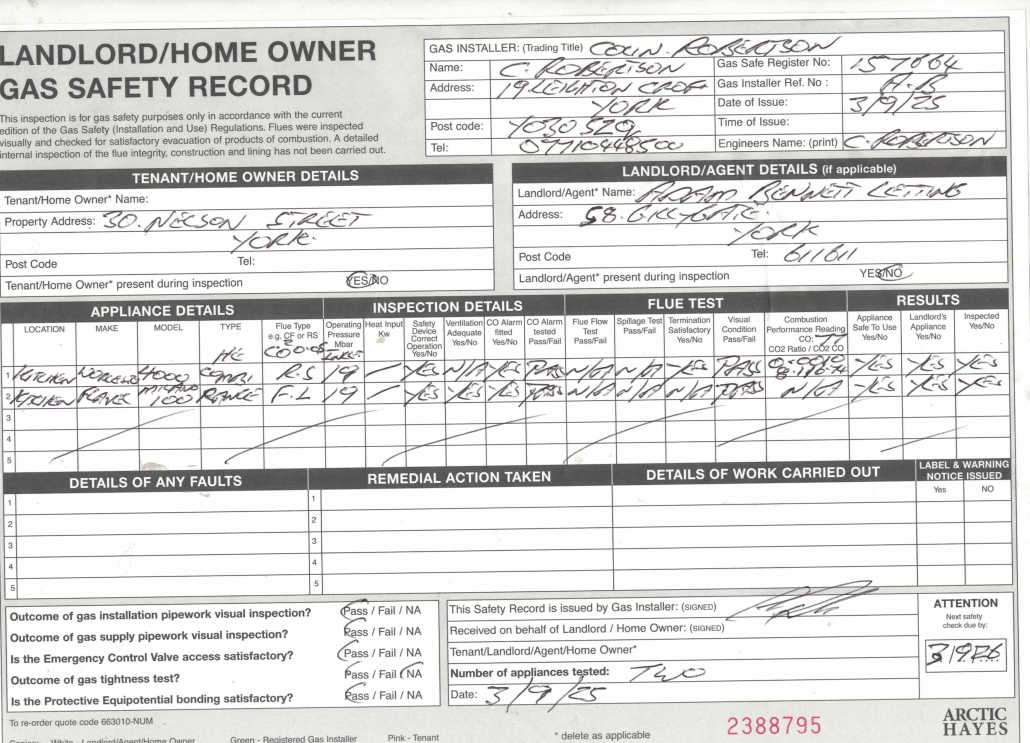 LANDLORD/HOME OWNER
GAS SAFETY RECORD
This inspection is for gas safety purposes only in accordance with the current
edition of the Gas Safety (Installation and Use) Regulations. Flues were inspected
visually and checked for satisfactory evacuation of products of combustion. A detailed
internal inspection of the flue integrity, construction and lining has not been carried out.
GAS INSTALLER: (Trading Title) COLIN. ROBERTSON
Name: C. ROBERTSON Gas Safe Register No: 157664
Address: 19 LEIGHTON CROFT Gas Installer Ref. No : A.B
YORK Date of Issue: 3/9/25
Post code: YO30 5ZQ Time of Issue:
Tel: 07710448500 Engineers Name: (print) C. ROBERTSON
TENANT/HOME OWNER DETAILS
Tenant/Home Owner* Name:
Property Address: 30. NELSON STREET
YORK.
Post Code Tel:
Tenant/Home Owner* present during inspection YES/NO
LANDLORD/AGENT DETAILS (if applicable)
Landlord/Agent* Name: ADAM BENNETT LETTING
Address: 58. GILLYGATE.
YORK
Post Code Tel: 611611
Landlord/Agent* present during inspection YES/NO
APPLIANCE DETAILS INSPECTION DETAILS FLUE TEST RESULTS
LOCATION MAKE MODEL TYPE Flue Type e.g. CF or RS Operating Pressure Mbar Heat Input Kw Safety Device Correct Operation Yes/No Ventilation Adequate Yes/No CO Alarm fitted Yes/No CO Alarm tested Pass/Fail Flue Flow Test Pass/Fail Spillage Test Pass/Fail Termination Satisfactory Yes/No Visual Condition Pass/Fail Combustion Performance Reading CO: CO2 Ratio / CO2 CO Appliance Safe To Use Yes/No Landlord's Appliance Yes/No Inspected Yes/No
1 KITCHEN 4000 COMBI R.S 19 YES N/A YES PASS N/A N/A YES PASS YES YES YES
2 KITCHEN 100 RANGE F.L 19 YES YES YES PASS N/A N/A N/A PASS N/A YES YES YES
3
4
5
DETAILS OF ANY FAULTS REMEDIAL ACTION TAKEN DETAILS OF WORK CARRIED OUT LABEL & WARNING NOTICE ISSUED
Yes NO
1 1
2 2
3 3
4 4
5 5
Outcome of gas installation pipework visual inspection? Pass / Fail / NA
Outcome of gas supply pipework visual inspection? Pass / Fail / NA
Is the Emergency Control Valve access satisfactory? Pass / Fail / NA
Outcome of gas tightness test? Pass / Fail / NA
Is the Protective Equipotential bonding satisfactory? Pass / Fail / NA
This Safety Record is issued by Gas Installer: (SIGNED)
Received on behalf of Landlord / Home Owner: (SIGNED)
Tenant/Landlord/Agent/Home Owner*
Number of appliances tested: TWO
Date: 3/9/25
ATTENTION
Next safety
check due by:
3/9/26
To re-order quote code 663010-NUM
Copies: White - Landlord/Agent/Home Owner Green - Registered Gas Installer Pink - Tenant
* delete as applicable
2388795
ARCTIC
HAYES